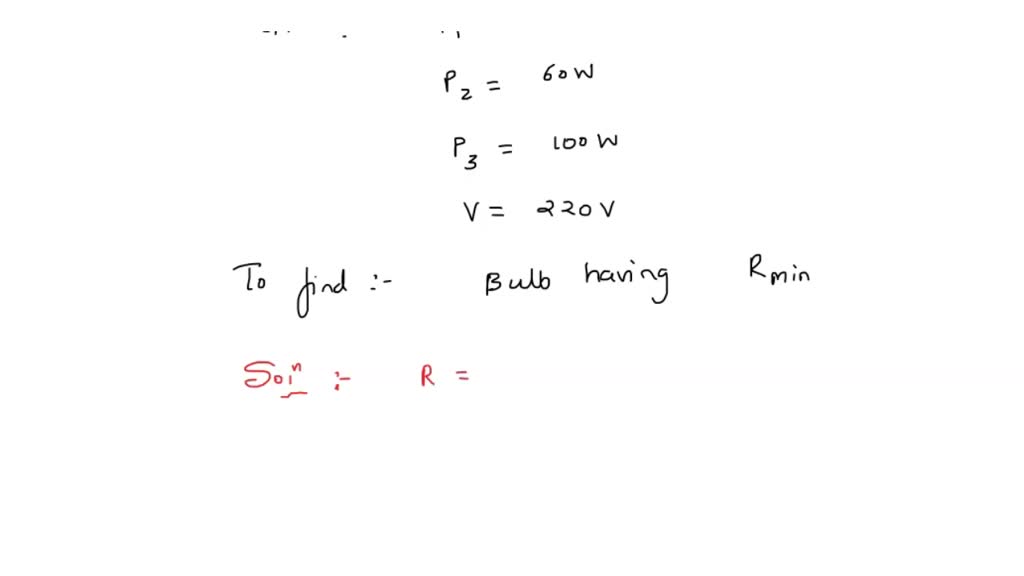 P2 = 60W
P3 = 100W
V = 220V
To find :- Bulb having Rmin
Soln :- R =